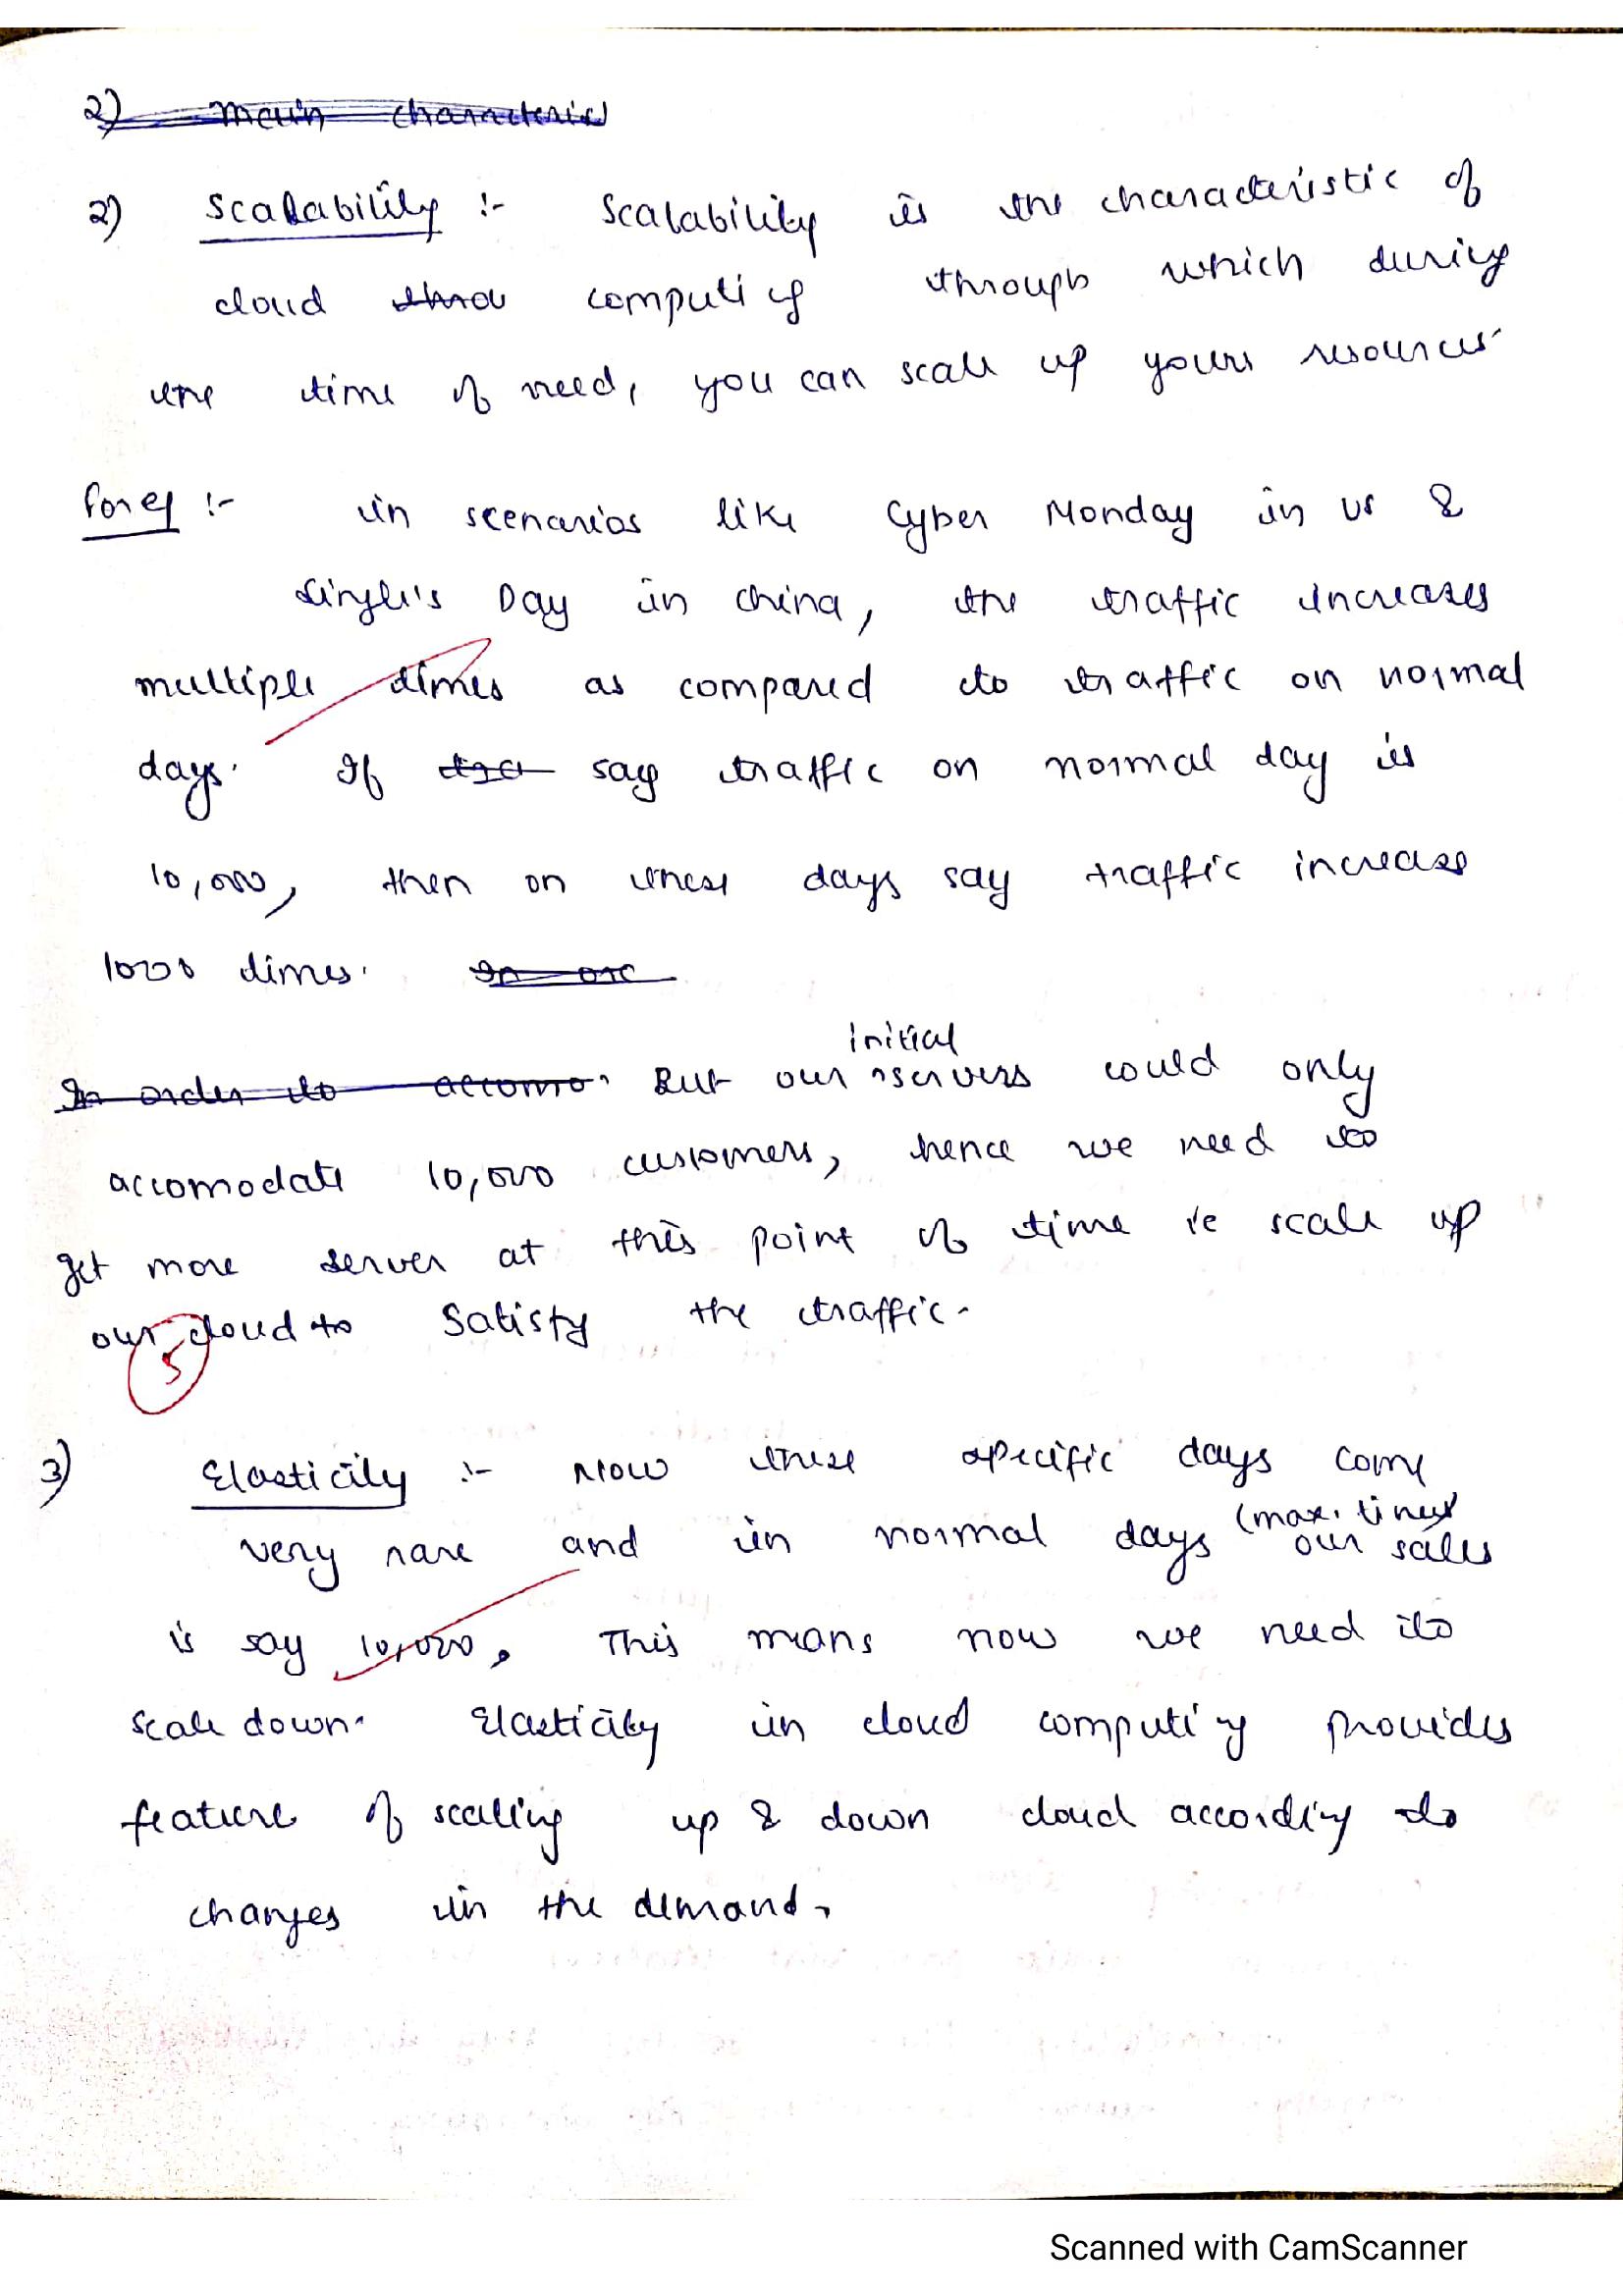 2) Main characteris
2) Scalability :- Scalability is the characteristic of
cloud computing through which during
the time of need, you can scale up yours resources.
For eg :- in scenarios like Cyber Monday in US &
Single's Day in China, the traffic increases
multiple times as compared to traffic on normal
days. If say traffic on normal day is
10,000, then on these days say traffic increase
1000 times.
initial
In order to accomo. But our servers could only
accomodate 10,000 customers, hence we need to
get more server at this point of time ie scale up
our cloud to Satisfy the traffic.
5
3) Elasticity :- Now these specific days come
very rare and in normal days (max. times)
our sales
is say 10,000. This means now we need to
scale down. Elasticity in cloud computing provides
feature of scaling up & down cloud according to
changes in the demand.
Scanned with CamScanner